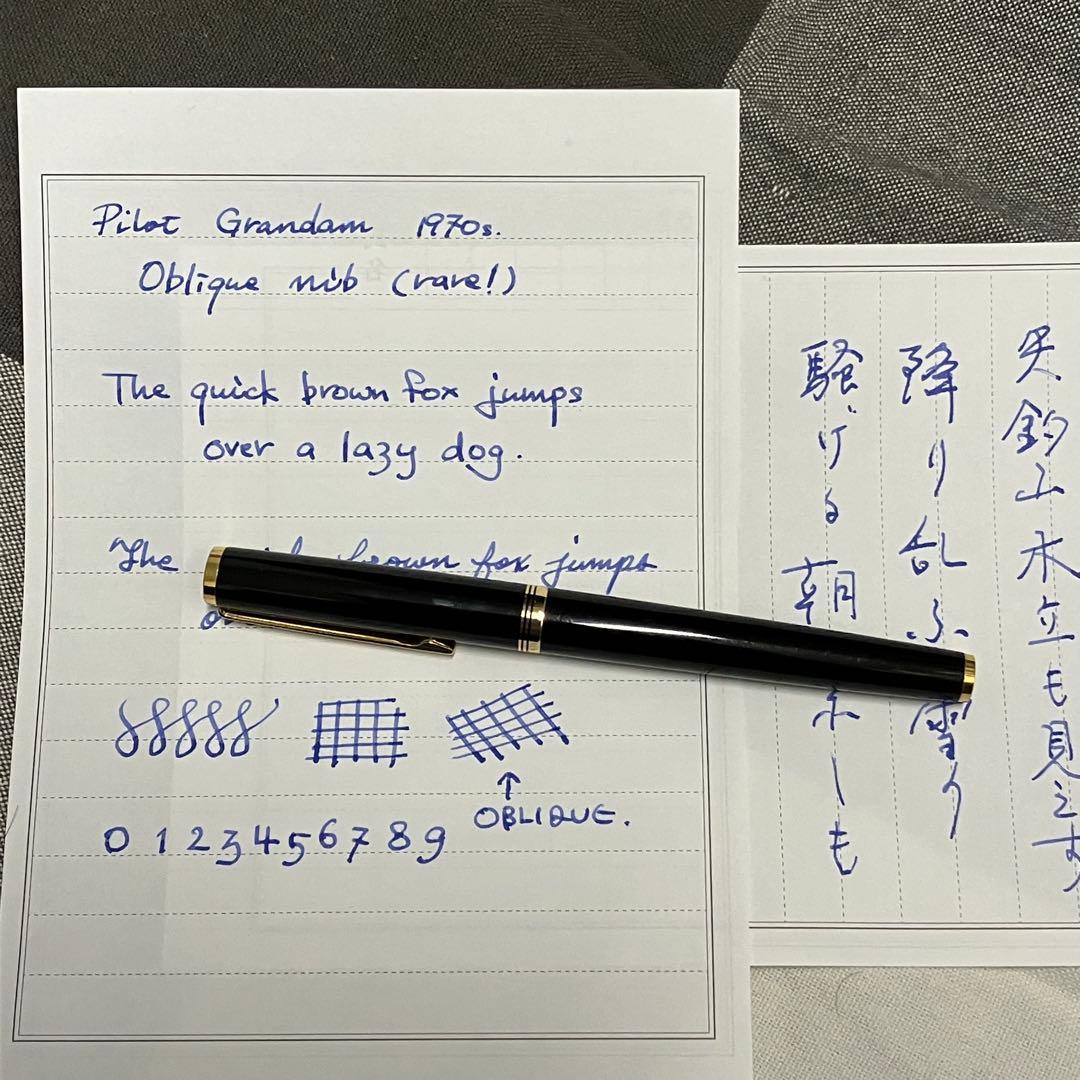 Pilot Grandam 1970s.
Oblique nib (rare!)
The quick brown fox jumps
over a lazy dog.
The brown fox jumps
0 1 2 3 4 5 6 7 8 9
OBLIQUE.
矢釣山木立も見えず
降り乱ふ雪の
騒げる朝しも